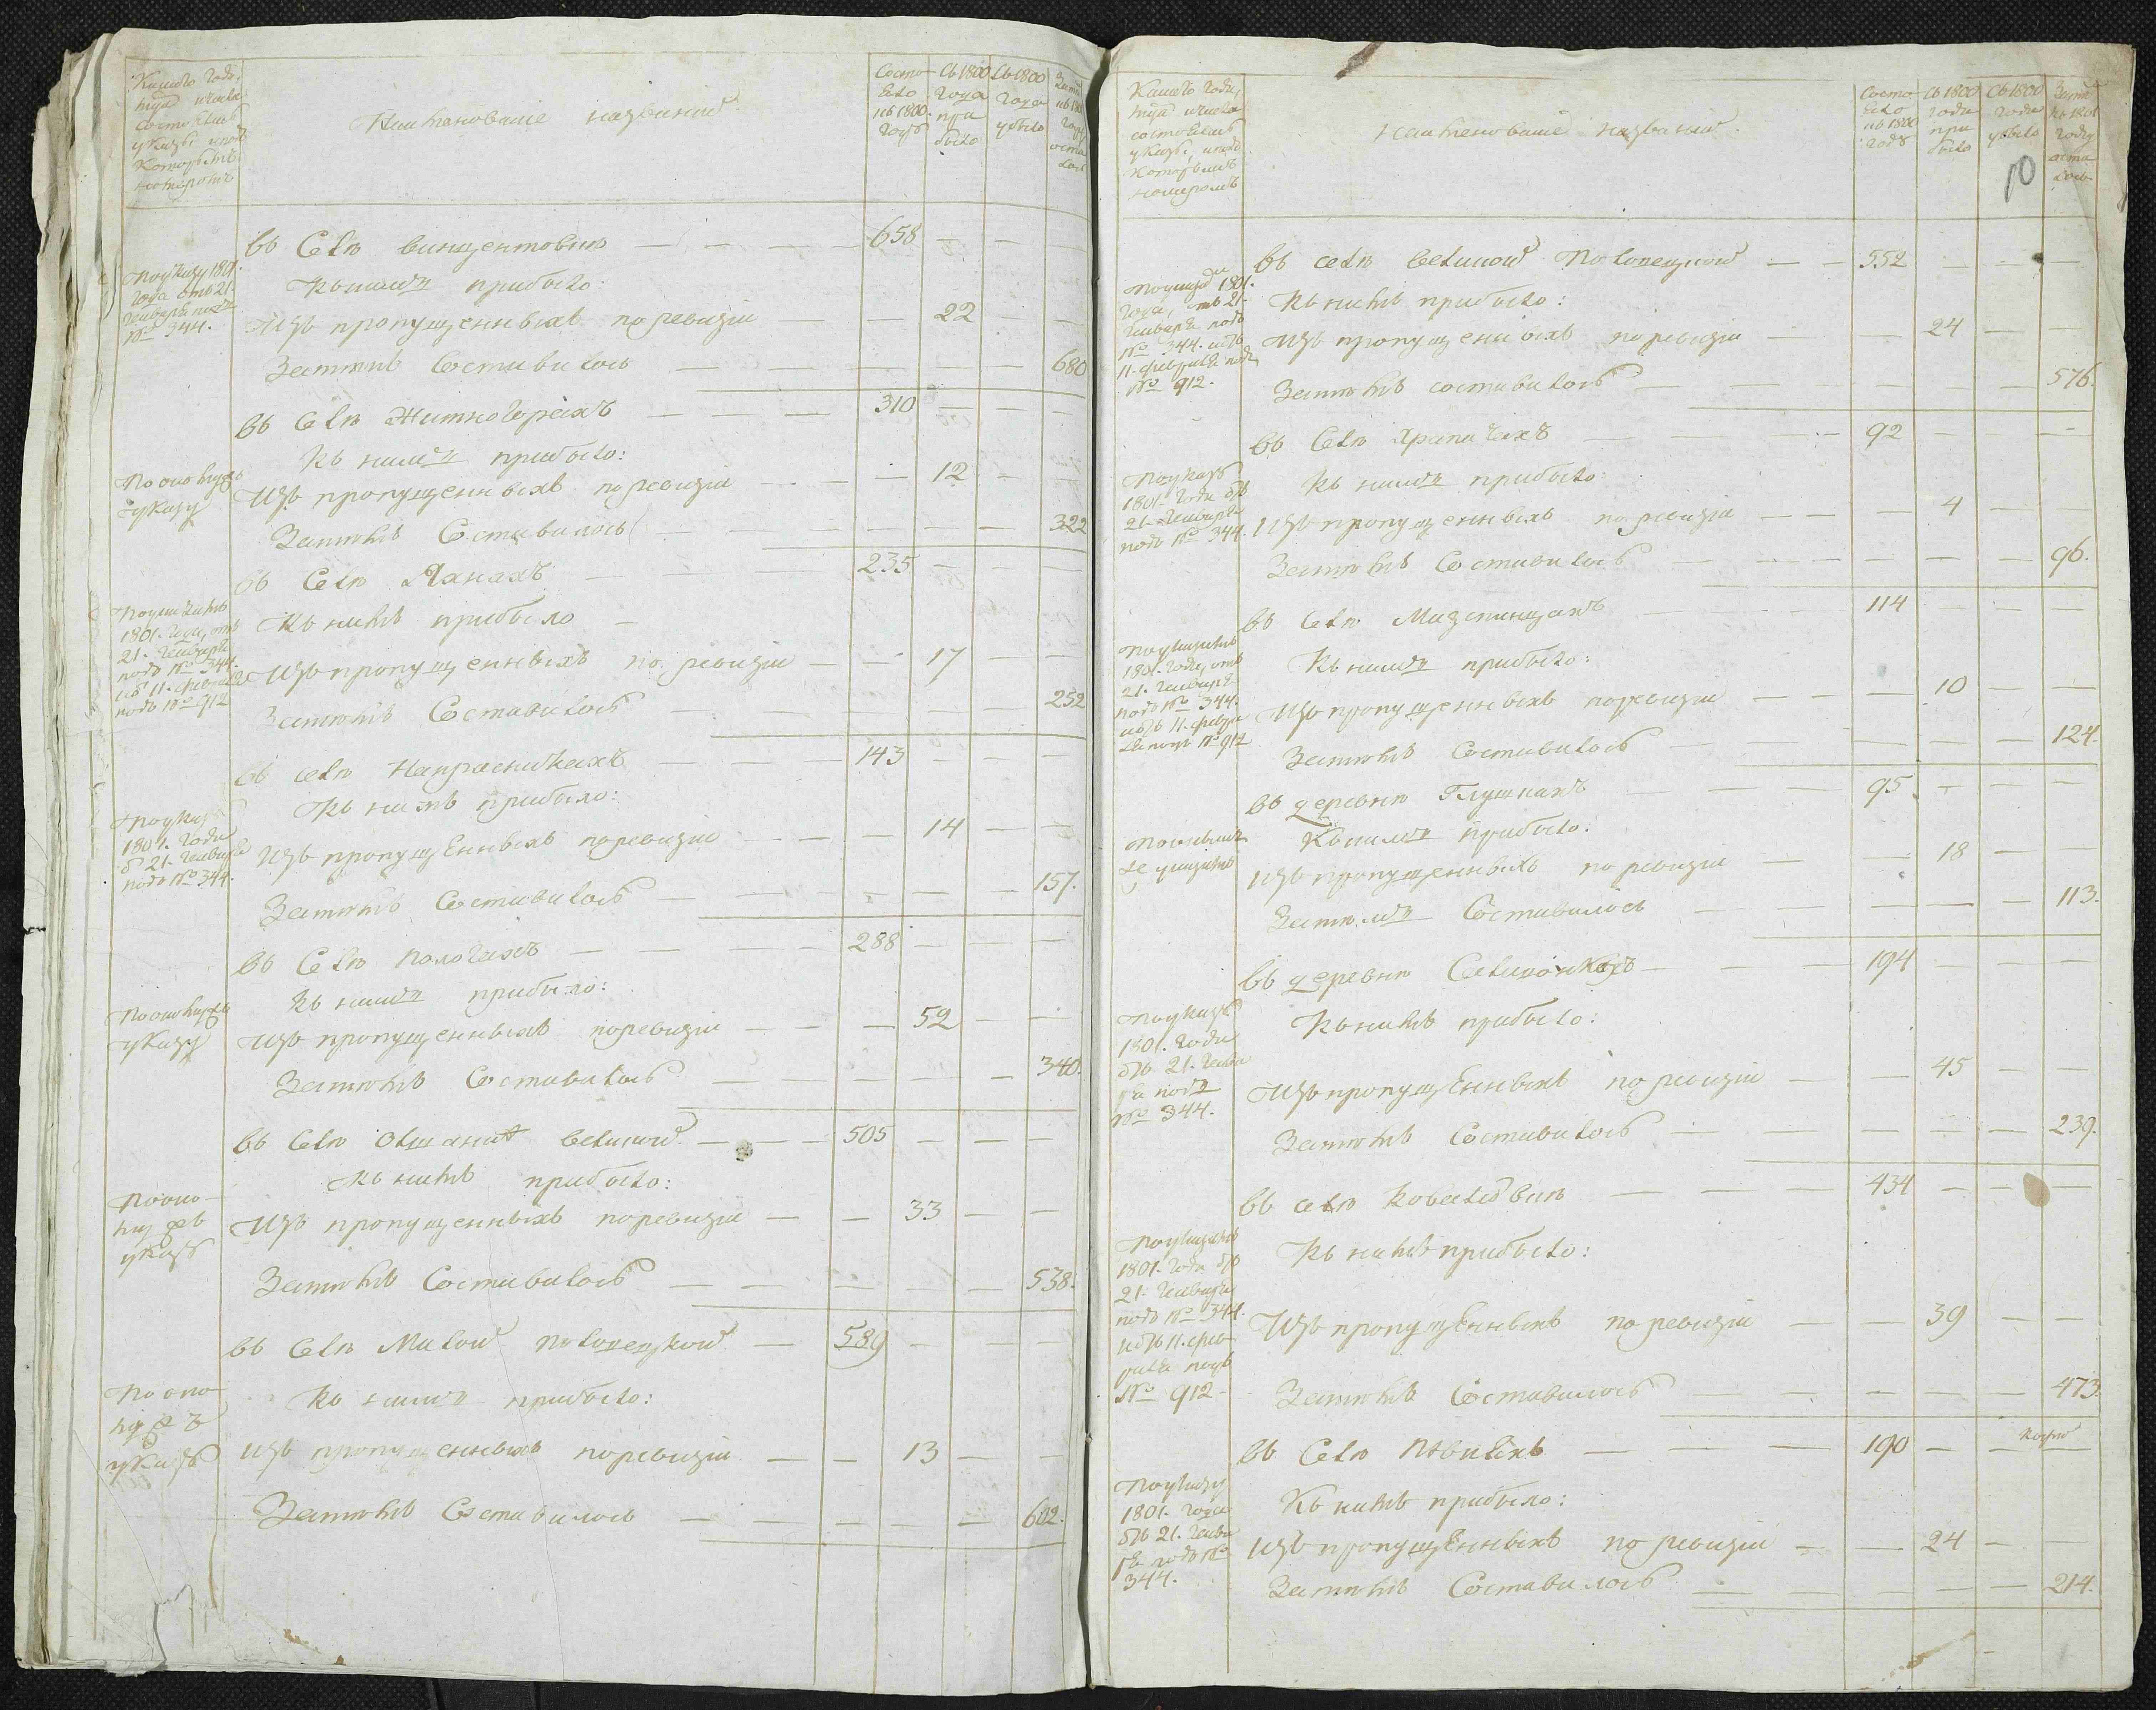 Коего года,
м̃ца и числа
состоялись
указы и подъ
которымъ
номеромъ
Наименованіе названий
Состо
яло
въ 1800.
годъ
Съ 1800
года
при
было
Съ 1800
года
убыло
Затѣмъ
къ 1801
году
оста
лось
Въ Селѣ Винцентовкѣ 658
По указу 1801.
года отъ 21.
Генваря подъ
№ 344.
Къ нимъ прибыло:
Изъ пропущенныхъ по ревизіи 22
Затѣмъ Составилось 680
Въ Селѣ Житногорахъ 310
Къ нимъ прибыло:
По оному жъ
указу
Изъ пропущенныхъ по ревизіи 12
Затѣмъ Составилось 322
Въ Селѣ Чанахъ 235
По указамъ
1801. года, отъ
21. Генваря
подъ № 344.
и отъ 11. февраля
подъ № 912
Къ нимъ прибыло
Изъ пропущенныхъ по ревизіи 17
Затѣмъ Составилось 252
Въ селѣ Напрасничкахъ 143
Къ нимъ прибыло:
По указу
1801. Года
отъ 21. Генваря
подъ № 344.
Изъ пропущенныхъ по ревизіи 14
Затѣмъ Составилось 157.
Въ Селѣ Пологахъ 288
Къ нимъ прибыло:
По оному жъ
указу
Изъ пропущенныхъ по ревизіи 52
Затѣмъ Составилось 340.
Въ Селѣ Олшаной великой 505
Къ нимъ прибыло:
По оно
му жъ
указу
Изъ пропущенныхъ по ревизіи 33
Затѣмъ Составилось 538.
Въ Селѣ Малой Половецкой 589
По оно
му жъ
указу
Къ нимъ прибыло:
Изъ пропущенныхъ по ревизіи 13
Затѣмъ Составилось 602.
Коего года,
м̃ца и числа
состоялись
указы, и подъ
которымъ
номеромъ
Наименованіе названий
Состо
яло
въ 1800
годъ
Съ 1800
года
при
было
Съ 1800
года
убыло
Затѣмъ
къ 1801
году
оста
лось
10
Въ селѣ великой Половецкой 552
По указамъ 1801.
года, отъ 21.
Генваря подъ
№ 344. и отъ
11. февраля подъ
№ 912.
Къ нимъ прибыло:
Изъ пропущенныхъ по ревизіи 24
Затѣмъ составилось 576.
Въ Селѣ Храпачахъ 92
По указу
1801. Года отъ
21. Генваря
подъ № 344.
Къ нимъ прибыло:
Изъ пропущенныхъ по ревизіи 4
Затѣмъ Составилось 96.
Въ Селѣ Мазепинцахъ 114
По указамъ
1801. Года, отъ
21. Генваря
подъ № 344.
и отъ 11. февра
ля подъ № 912
Къ нимъ прибыло:
Изъ пропущенныхъ по ревизіи 10
Затѣмъ Составилось 124.
Въ деревнѣ Глушкахъ 95.
По онымъ
же указамъ
Къ нимъ прибыло:
Изъ пропущенныхъ по ревизіи 18
Затѣмъ Составилось 113.
Въ деревнѣ Селихонкахъ 194
По указу
1801. Года
отъ 21. Генва
ря подъ
№ 344.
Къ нимъ прибыло:
Изъ пропущенныхъ по ревизіи 45
Затѣмъ Составилось 239.
Въ селѣ Ковалювкѣ 434
По указамъ
1801. Года отъ
21. Генваря
подъ № 344.
и отъ 11. фев
раля подъ
№ 912
Къ нимъ прибыло:
Изъ пропущенныхъ по ревизіи 39
Затѣмъ Составилось 473.
Въ Селѣ Пивняхъ 190
По указу
1801. года
отъ 21. Генва
ря подъ №
344.
Къ нимъ прибыло:
Изъ пропущенныхъ по ревизіи 24
Затѣмъ Составилось 214.